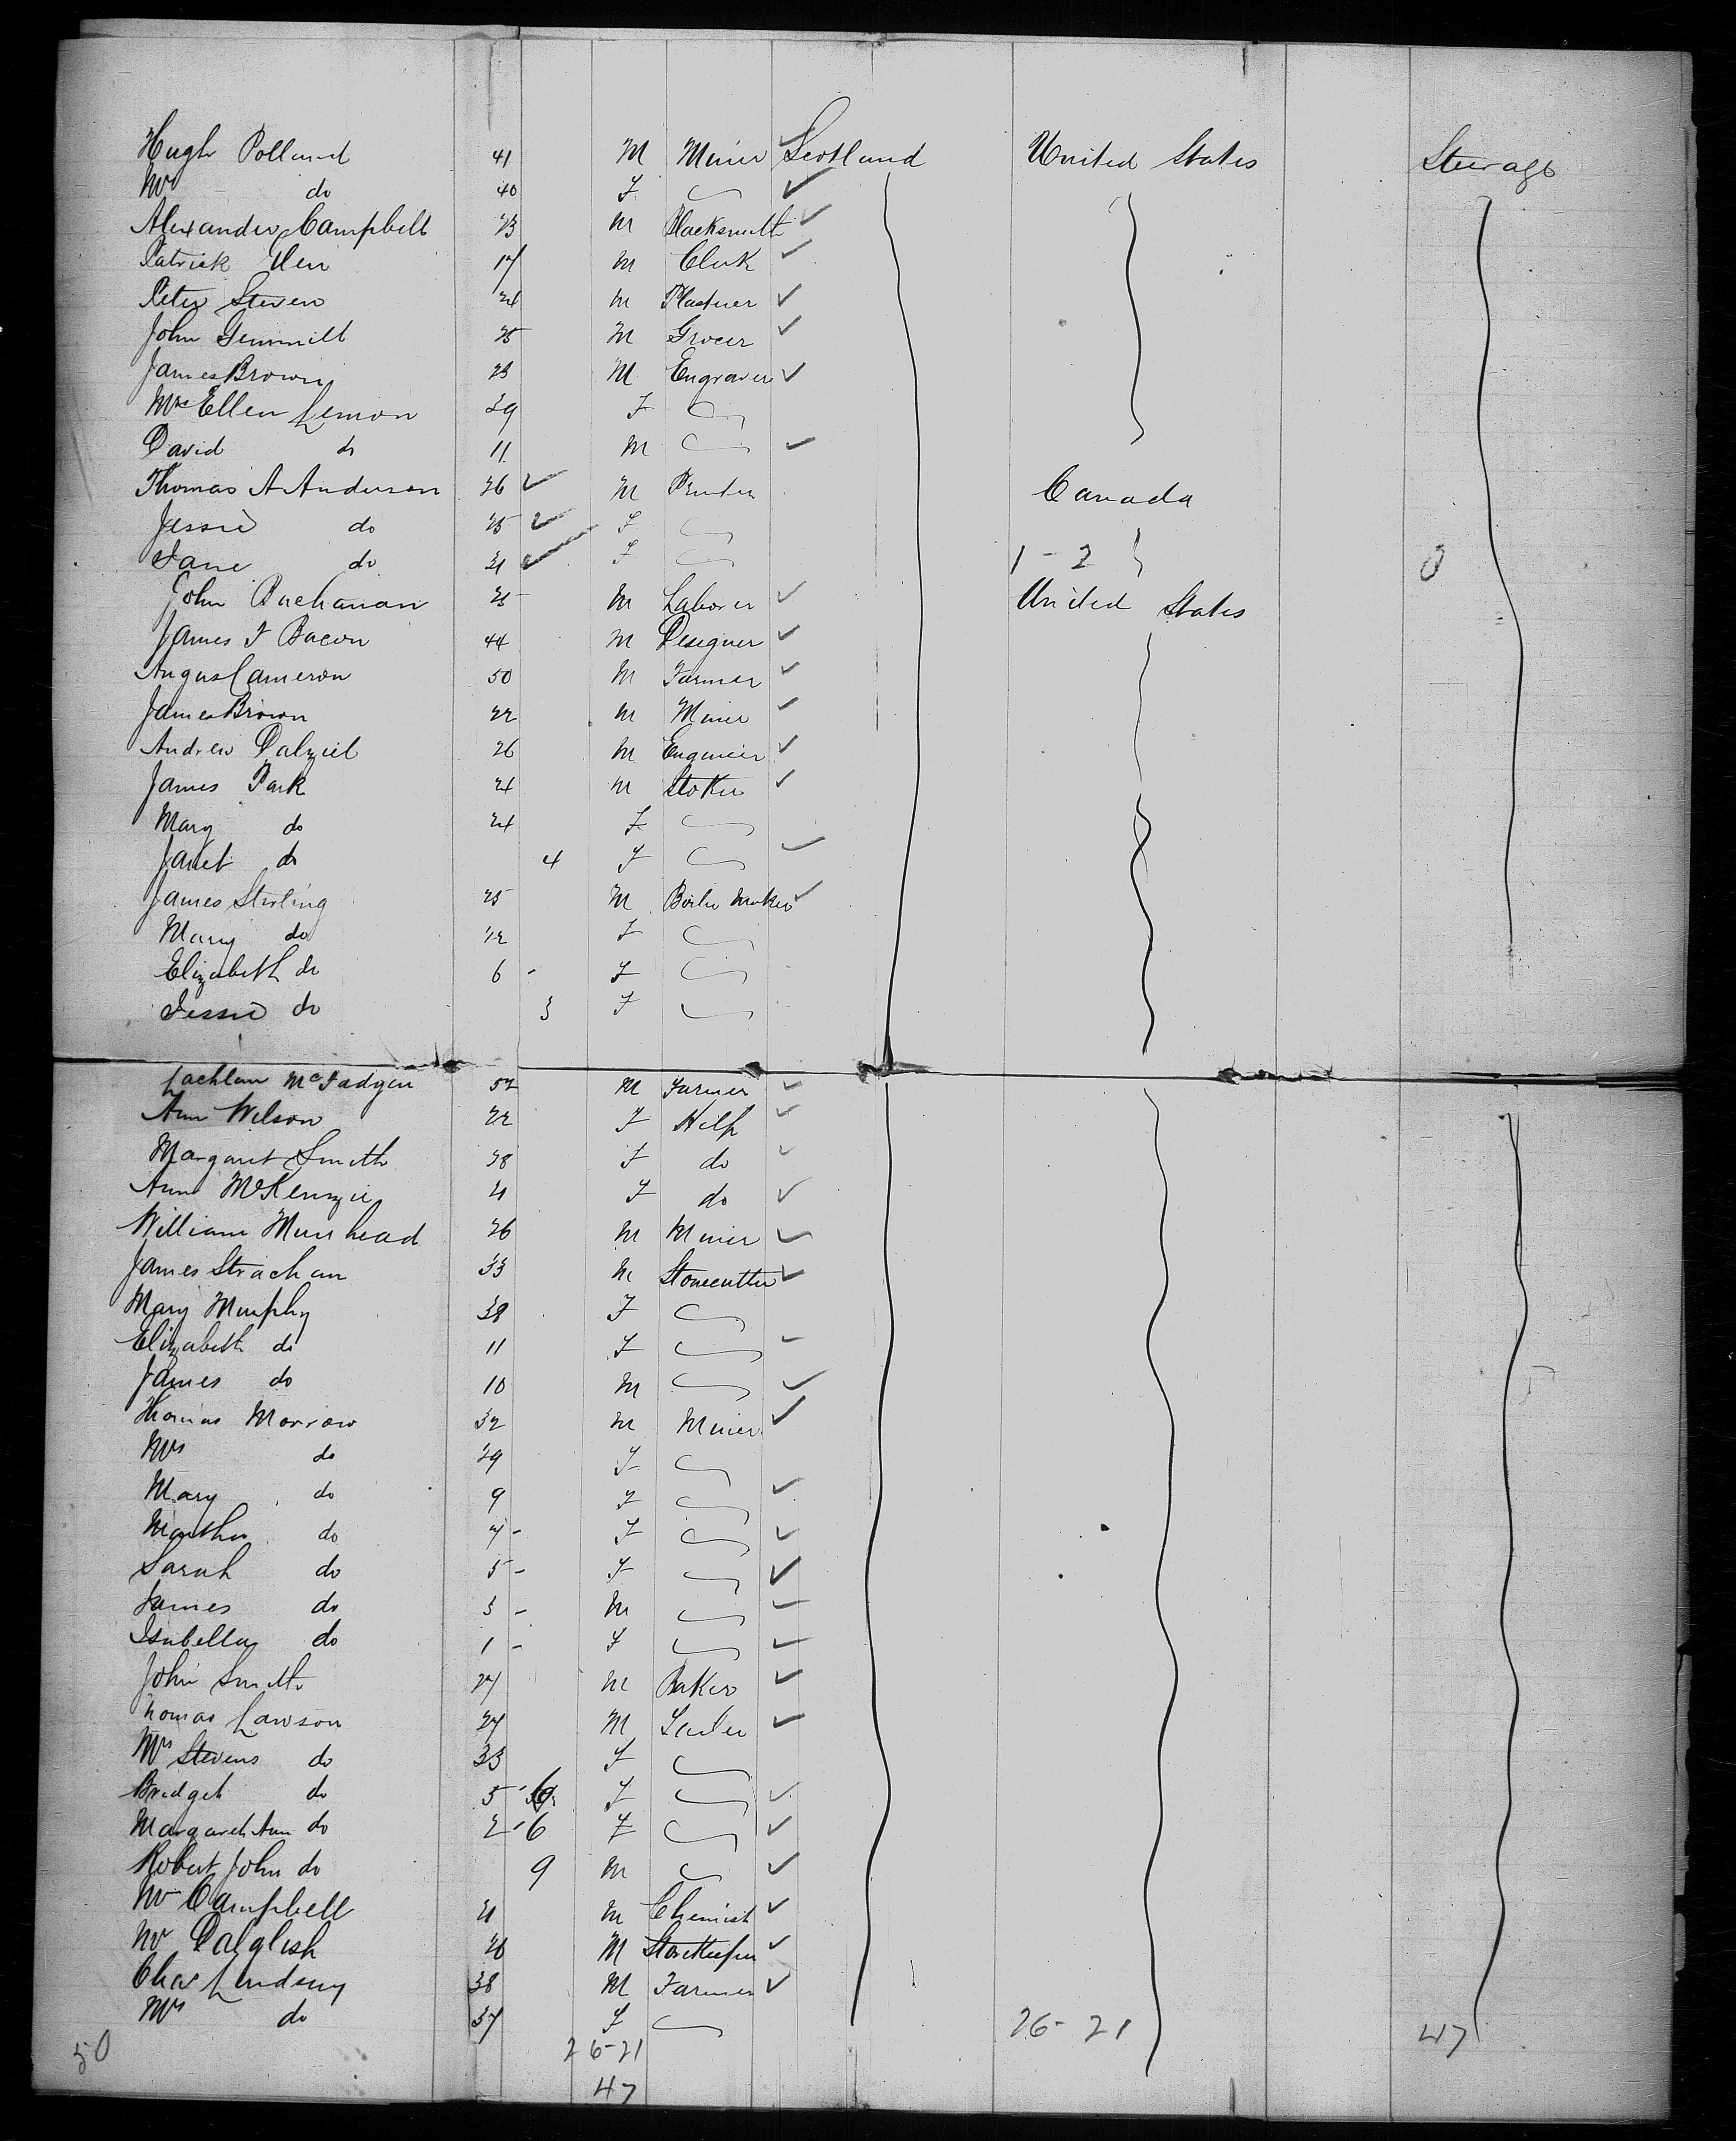 Hugh Pollard 41 M Miner Scotland United States Steerage
Mrs do 40 F
Alexander Campbell 23 M Blacksmith
Patrick 17 M Clerk
Peter Steven 24 M Plasterer
John Gemmill 25 M Grocer
James Brown 23 M Engraver
Mrs Ellen Lemon 39 F
David do 11 M
Thomas A Anderson 26 M Printer Canada
Jessie do 25 F
Jane do 21 F 1-2 0
John Buchanan 25 M Laborer United States
James F Bacon 44 M Designer
Angus Cameron 50 M Farmer
James Brown 22 M Miner
Andrew Dalziel 26 M Engineer
James Park 24 M Stoker
Mary do 24 F
Janet do 4 F
James Stirling 25 M Boiler Maker
Mary do 22 F
Elizabeth do 6 - F
Jessie do 3 F
Lachlan McFadyen 52 M Farmer
Ann Wilson 22 F Help
Margaret Smith 28 F do
Ann McKenzie 21 F do
William Muirhead 26 M Miner
James Strachan 33 M Stonecutter
Mary Murphy 38 F
Elizabeth do 11 F
James do 10 M
Thomas Morrow 32 M Miner
Mrs do 29 F
Mary do 9 F
Martha do 7 - F
Sarah do 5 - F
James do 3 - M
Isabella do 1 - F
John Smith 27 M Baker
Thomas Lawson 27 M
Mrs Stevens do 33 F
Bridget do 5 - 6 F
Margaret Ann do 2 - 6 F
Robert John do 9 M
Mr Campbell 21 M Chemist
Mr Dalglish 26 M Storekeeper
Chas Lindsay 38 M Farmer
Mrs do 37 F 26-21 47
50 26-21
47